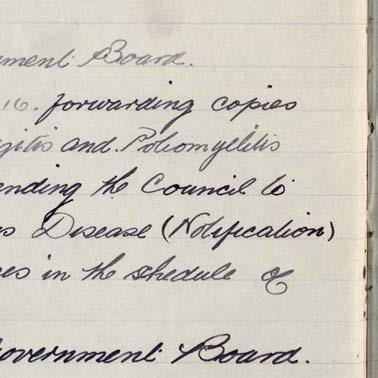 nment Board.
16. forwarding copies
gitis and Poliomyelitis
ending the Council to
us Disease (Notification)
es in the shedule of
overnment Board.